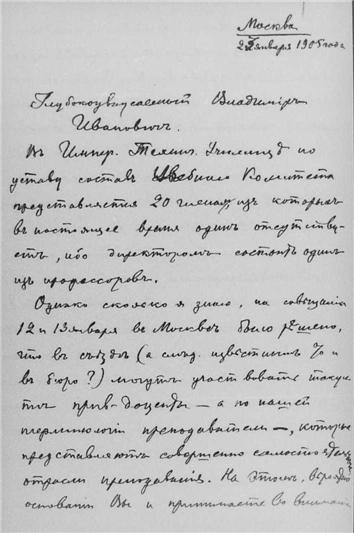 Москва
января 1905 года
Глубокоуважаемый Владимiръ
Ивановичъ.
Въ Импер. Технич. Училищѣ по
уставу составъ Учебнаго Комитета
представляется 20 членами, изъ которыхъ
въ настоящее время одинъ отсутству-
етъ, ибо директоромъ состоитъ одинъ
изъ профессоровъ.
Однако сколько я знаю, на совѣщанiи
12 и 13 января въ Москвѣ было рѣшено,
что въ съѣздѣ (а слѣд. извѣстнымъ % и
въ бюро?) могутъ участвовать также
прив-доценты — а по нашей
терминологiи преподаватели —, которые
представляютъ совершенно самостоятельн
отрасли преподаванiя. На этомъ,
основанiи Вы и принимаете во вниманiе